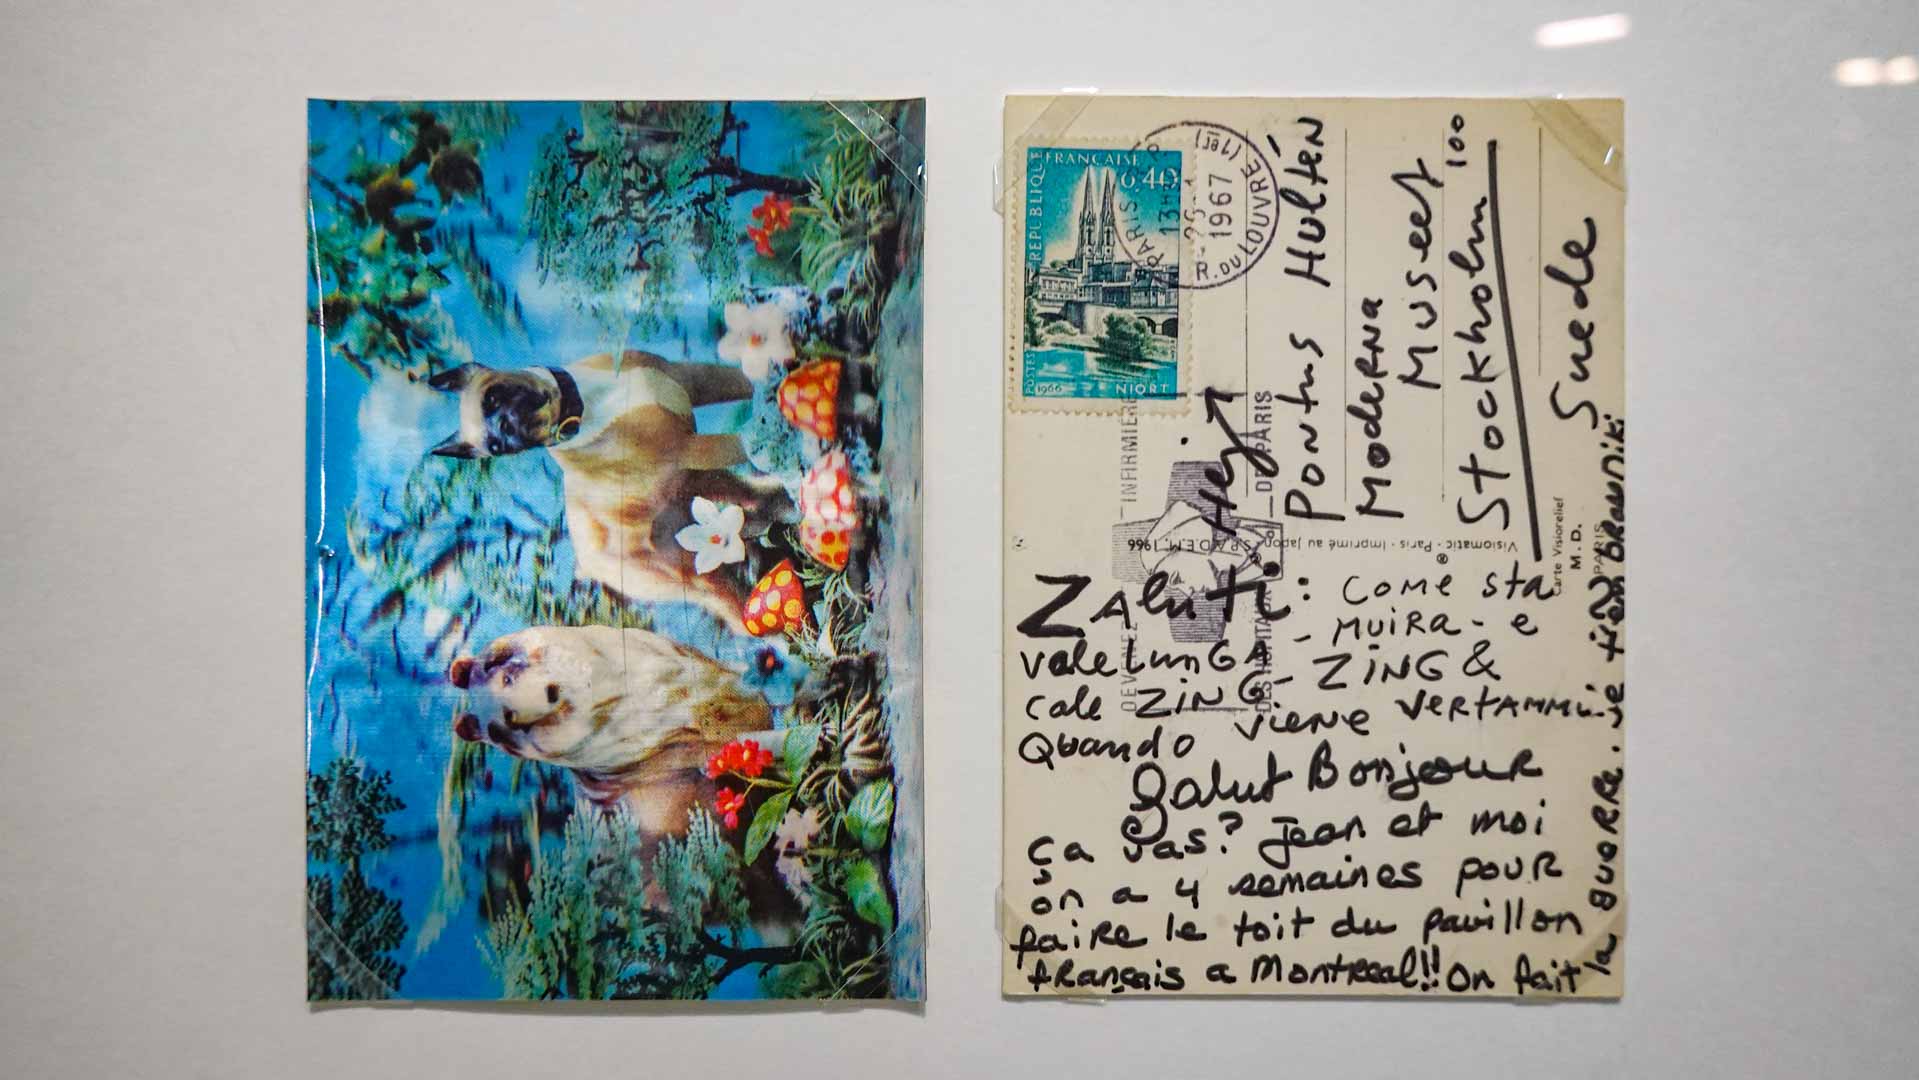 REPUBLIQUE FRANCAISE
0,40
POSTES
1966
NIORT
PARIS
13H
1967
R. DU LOUVRE (1er)
DEVENEZ INFIRMIERE
DES HOPITAUX DE PARIS
Hej
Pontus Hultén
Moderna
Museet
Stockholm 100
Suede
Visiomatic - Paris - Imprimé au Japon - S.P.A.D.E.M. 1966
Carte Visiorelief
M. D.
PARIS
Zaluti: come sta
valelunga - Muira - e
cale Zing - Zing &
Quando viene
Salut Bonjour
ça vas? Jean et moi
on a 4 semaines pour
faire le toit du pavillon
français a Montreal!! On fait
la guorre. je